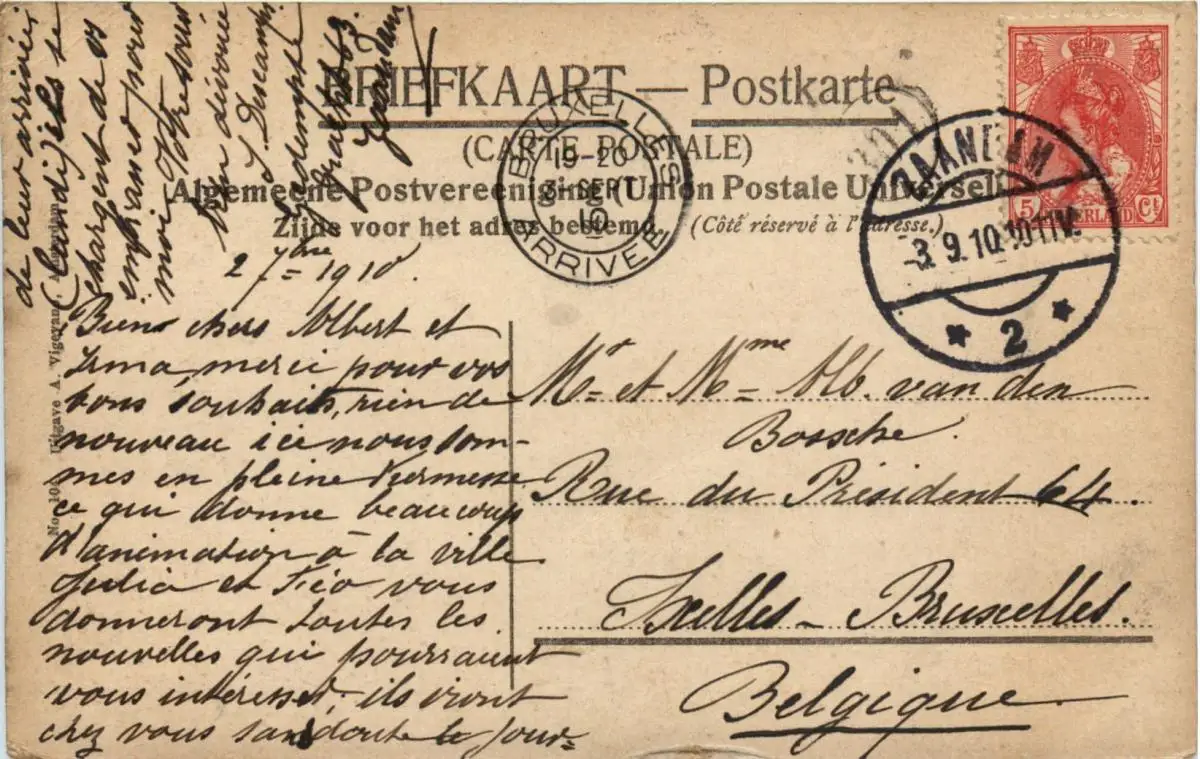 BRIEFKAART — Postkarte
(CARTE POSTALE)
Algemeene Postvereeniging (Union Postale Universelle)
Zijde voor het adres bestemd. (Côté réservé à l'adresse.)
BRUXELLES
19-20
3-SEPT
10
ARRIVEE
ZAANDAM
3.9.10.10-11V.
2
5 NEDERLAND Ct
Uitgave A. Vigeveno, Zaandam
2 7bre 1910
Bien chers Albert et
Irma merci pour vos
bons souhaits, rien de
nouveau ici nous som-
mes en pleine Kermesse
ce qui donne beaucoup
d'animation à la ville
Julia et Féo vous
donneront toutes les
nouvelles qui pourraient
vous intéresser, ils iront
chez vous sans doute le jour-
de leur arrivée
(Candijels se
chargent de os
embrasser pour
moi Votre soeur
bien dévouée
L. Descamps
Zaandam
Mr et Mme Alb. van den
Bossche.
Rue du Président 64.
Ixelles - Bruxelles.
Belgique